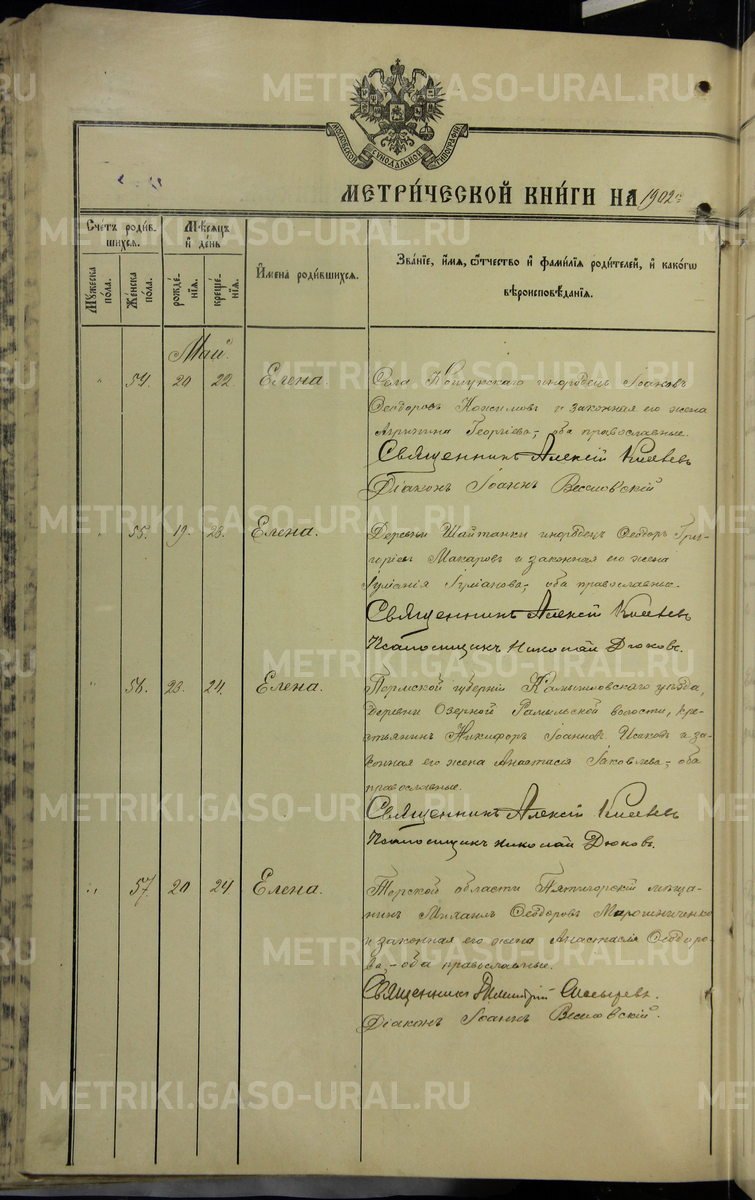 МОСКОВСКОЙ СѴНОДАЛЬНОЙ ТИПОГРАФІИ
МЕТРИ́ЧЕСКОЙ КНИ́ГИ НА 1902 г.
Сче́тъ роди́в-
шихся.
Му́жеска
по́ла.
Же́нска
по́ла.
Мѣ́сяцъ
и҆ де́нь
рожде́-
нїѧ.
креще́-
нїѧ.
И҆мена̀ роди́вшихся.
Зва́нїе, и҆́мѧ, ѻ҆́тчество и҆ фами́лїѧ роди́телей, и҆ како́гѡ
вѣроисповѣ́данїѧ.
Май.
" 54. 20 22. Елена.
Села инородецъ Іоаннъ
Ѳеодоровъ и законная его жена
Агрипина Георгіева, оба православные.
Священникъ Алексій
Діаконъ Іоаннъ Веселовскій
" 55. 19. 23. Елена.
Деревни Шайтанки инородецъ Ѳеодоръ Гри-
горіевъ Макаровъ и законная его жена
Іуліанія оба православные.
Священникъ Алексій
Псаломщикъ Николай Дюковъ.
" 56. 23. 24. Елена.
Пермской губерніи Камышловскаго уѣзда,
деревни Озерной волости, кре-
стьянинъ Никифоръ Іоанновъ Исаковъ и за-
конная его жена Анастасія Іаковлева, оба
православные.
Священникъ Алексій
Псаломщикъ Николай Дюковъ.
" 57. 20 24 Елена.
Терской области Пятигорскій мѣща-
нинъ Михаилъ Ѳеодоровъ Мирошниченко
и законная его жена Анастасія Ѳеодоро-
ва, оба православные.
Священникъ Димитрій
Діаконъ Іоаннъ Веселовскій.
METRIKI.GASO-URAL.RU